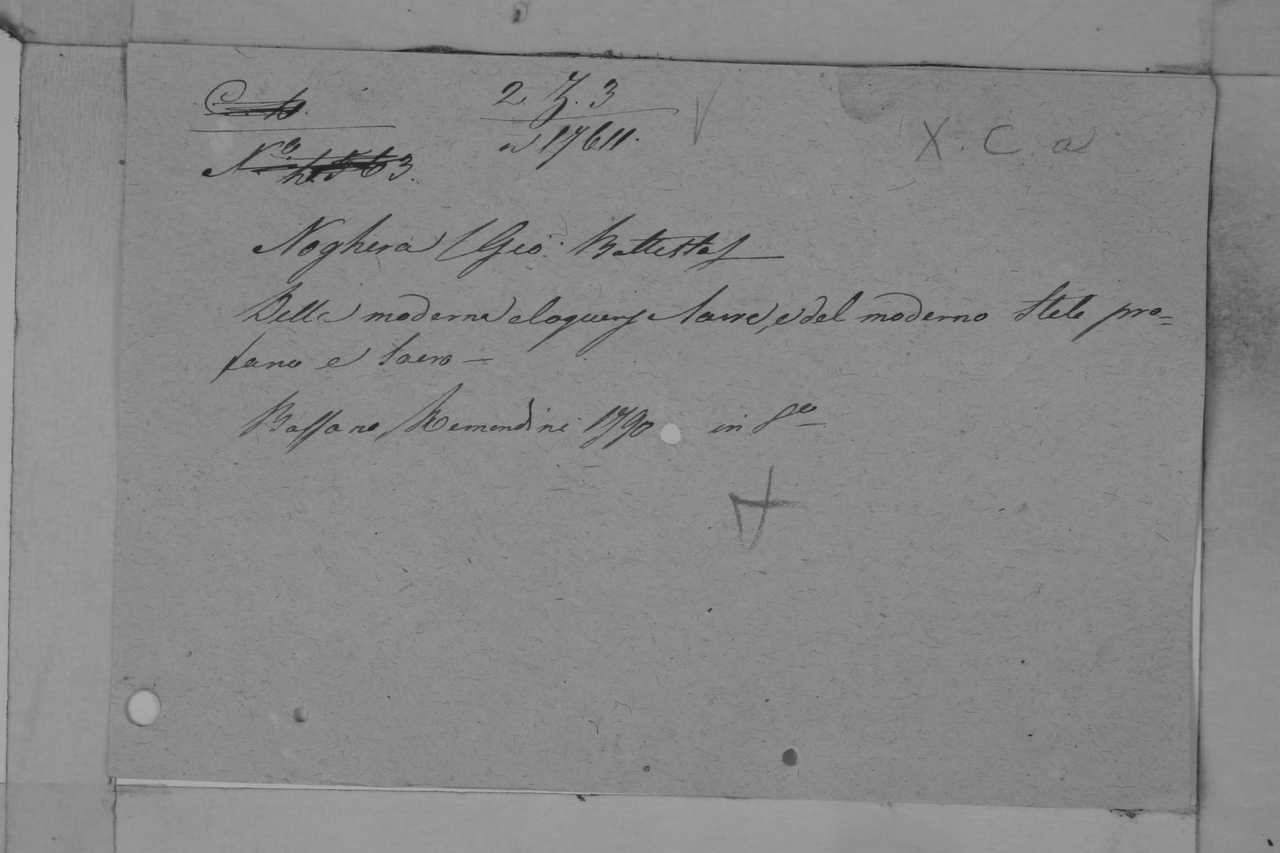 2. Z. 3
N.º
a 17611.
X. C. a
Noghera (Gio: Battista)
Della moderna eloquenza sacra, e del moderno stile pro=
fano e sacro —
Bassano, Remondini 1790 in 8º